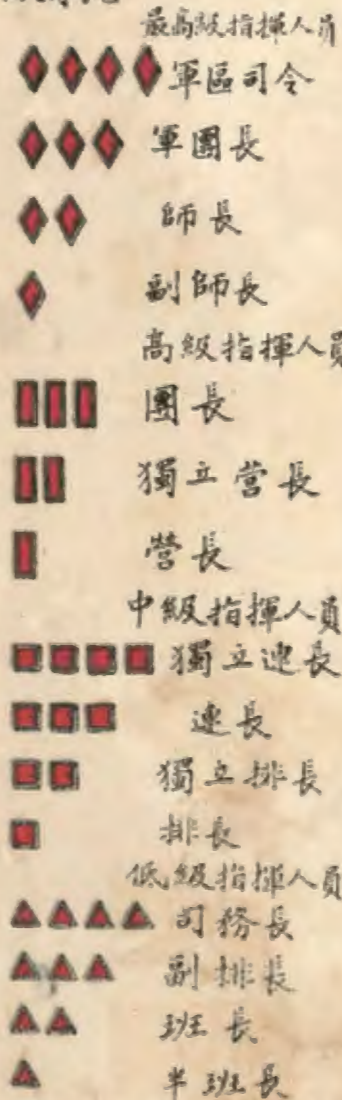 最高級指揮人員
軍區司令
軍團長
師長
副師長
高級指揮人員
團長
獨立營長
營長
中級指揮人員
獨立連長
連長
獨立排長
排長
低級指揮人員
司務長
副排長
班長
半班長